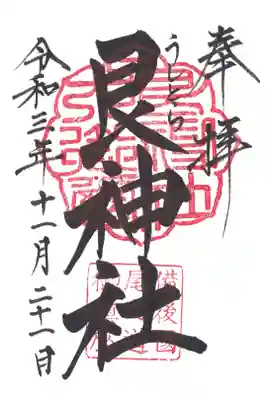 奉拝
うしとら
艮神社
令和三年 十一月 二十一日
備後国
尾道